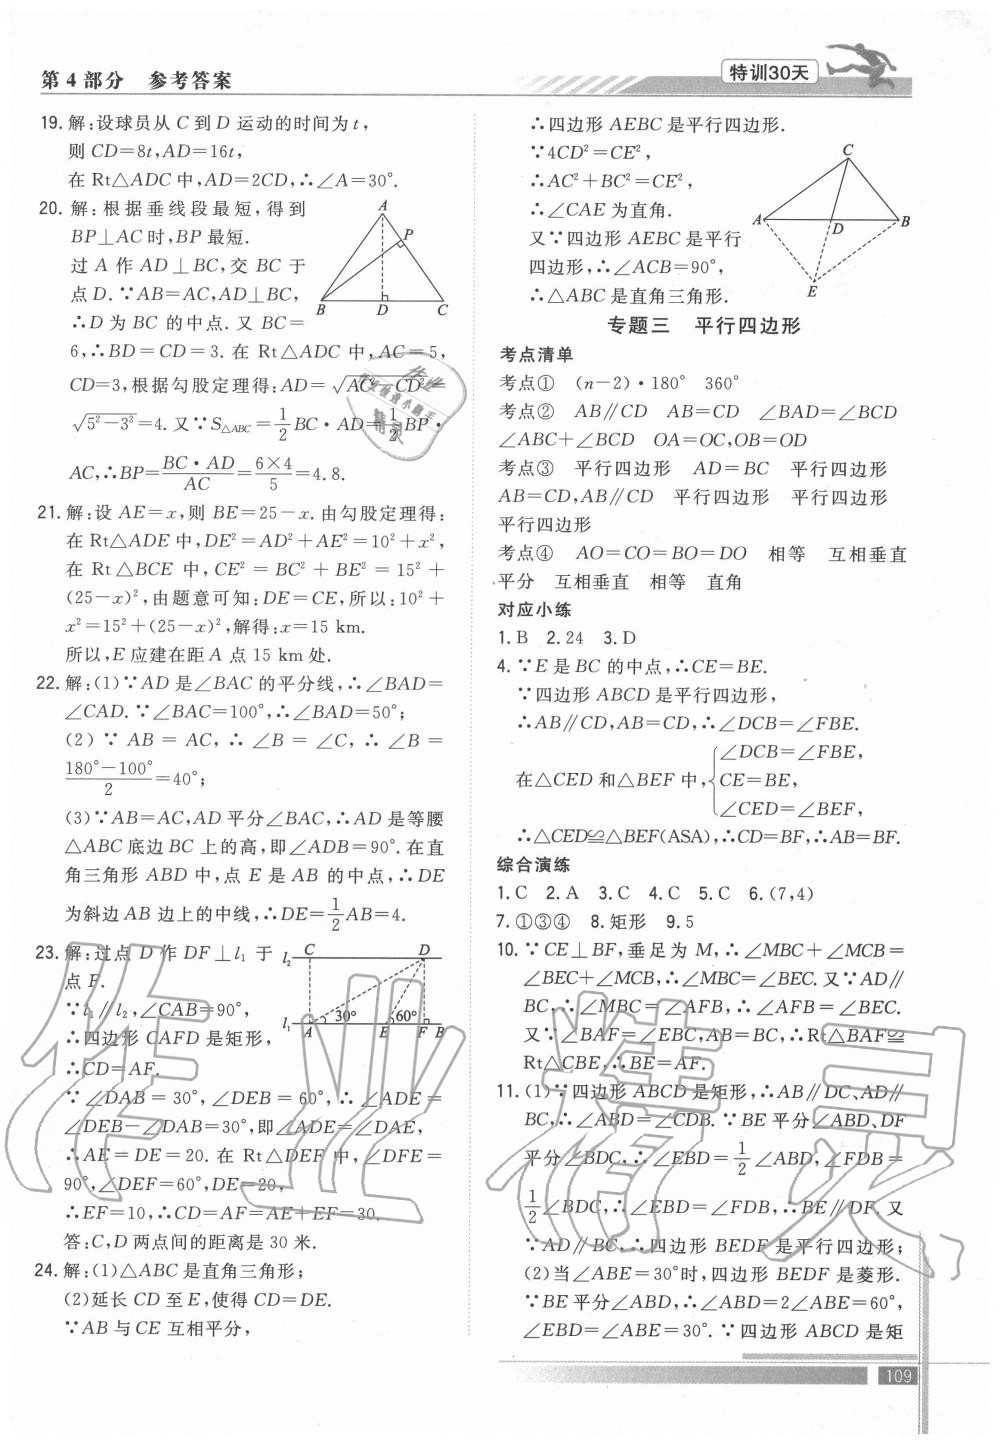 第4部分　参考答案
特训30天
19. 解:设球员从 C 到 D 运动的时间为 t,
则 CD=8t,AD=16t,
在 Rt△ADC 中,AD=2CD,∴∠A=30°.
20. 解:根据垂线段最短,得到
BP⊥AC时,BP最短.
过 A 作 AD⊥BC,交 BC 于
点 D.∵AB=AC,AD⊥BC,
∴D 为 BC 的中点.又 BC=
6,∴BD=CD=3.在 Rt△ADC 中,AC=5,
CD=3,根据勾股定理得:AD=√(AC²-CD²)=
√(5²-3²)=4.又∵S△ABC=1/2 BC·AD=1/2 BP·
AC,∴BP=(BC·AD)/AC=(6×4)/5=4.8.
A
P
B
D
C
21. 解:设 AE=x,则 BE=25-x.由勾股定理得:
在 Rt△ADE 中,DE²=AD²+AE²=10²+x²,
在 Rt△BCE 中,CE²=BC²+BE²=15²+
(25-x)²,由题意可知:DE=CE,所以:10²+
x²=15²+(25-x)²,解得:x=15 km.
所以,E 应建在距 A 点 15 km 处.
22. 解:(1)∵AD 是∠BAC 的平分线,∴∠BAD=
∠CAD.∵∠BAC=100°,∴∠BAD=50°;
(2)∵AB=AC,∴∠B=∠C,∴∠B=
(180°-100°)/2=40°;
(3)∵AB=AC,AD 平分∠BAC,∴AD 是等腰
△ABC 底边 BC 上的高,即∠ADB=90°.在直
角三角形 ABD 中,点 E 是 AB 的中点,∴DE
为斜边 AB 边上的中线,∴DE=1/2 AB=4.
23. 解:过点 D 作 DF⊥l₁ 于
点 F.
∵l₁∥l₂,∠CAB=90°,
∴四边形 CAFD 是矩形,
∴CD=AF.
∵∠DAB=30°,∠DEB=60°,∴∠ADE=
∠DEB-∠DAB=30°,即∠ADE=∠DAE,
∴AE=DE=20.在 Rt△DEF 中,∠DFE=
90°,∠DEF=60°,DE=20,
∴EF=10,∴CD=AF=AE+EF=30.
答:C,D 两点间的距离是 30 米.
l₂
C
D
l₁
30°
60°
A
E
F
B
24. 解:(1)△ABC 是直角三角形;
(2)延长 CD 至 E,使得 CD=DE.
∵AB 与 CE 互相平分,
∴四边形 AEBC 是平行四边形.
∵4CD²=CE²,
∴AC²+BC²=CE²,
∴∠CAE 为直角.
又∵四边形 AEBC 是平行
四边形,∴∠ACB=90°,
∴△ABC 是直角三角形.
C
A
D
B
E
专题三　平行四边形
考点清单
考点①　(n-2)·180°　360°
考点②　AB∥CD　AB=CD　∠BAD=∠BCD
∠ABC+∠BCD　OA=OC,OB=OD
考点③　平行四边形　AD=BC　平行四边形
AB=CD,AB∥CD　平行四边形　平行四边形
平行四边形
考点④　AO=CO=BO=DO　相等　互相垂直
平分　互相垂直　相等　直角
对应小练
1. B　2. 24　3. D
4. ∵E 是 BC 的中点,∴CE=BE.
∵四边形 ABCD 是平行四边形,
∴AB∥CD,AB=CD,∴∠DCB=∠FBE.
∠DCB=∠FBE,
在△CED 和△BEF 中,{CE=BE,
∠CED=∠BEF,
∴△CED≌△BEF(ASA),∴CD=BF,∴AB=BF.
综合演练
1. C　2. A　3. C　4. C　5. C　6. (7,4)
7. ①③④　8. 矩形　9. 5
10. ∵CE⊥BF,垂足为 M,∴∠MBC+∠MCB=
∠BEC+∠MCB,∴∠MBC=∠BEC.又∵AD∥
BC,∴∠MBC=∠AFB,∴∠AFB=∠BEC.
又∵∠BAF=∠EBC,AB=BC,∴Rt△BAF≌
Rt△CBE,∴BE=AF.
11. (1)∵四边形 ABCD 是矩形,∴AB∥DC、AD∥
BC,∴∠ABD=∠CDB.∵BE 平分∠ABD、DF
平分∠BDC,∴∠EBD=1/2∠ABD,∠FDB=
1/2∠BDC,∴∠EBD=∠FDB,∴BE∥DF.又
∵AD∥BC,∴四边形 BEDF 是平行四边形;
(2)当∠ABE=30°时,四边形 BEDF 是菱形.
∵BE 平分∠ABD,∴∠ABD=2∠ABE=60°,
∠EBD=∠ABE=30°.∵四边形 ABCD 是矩
109
作业精灵